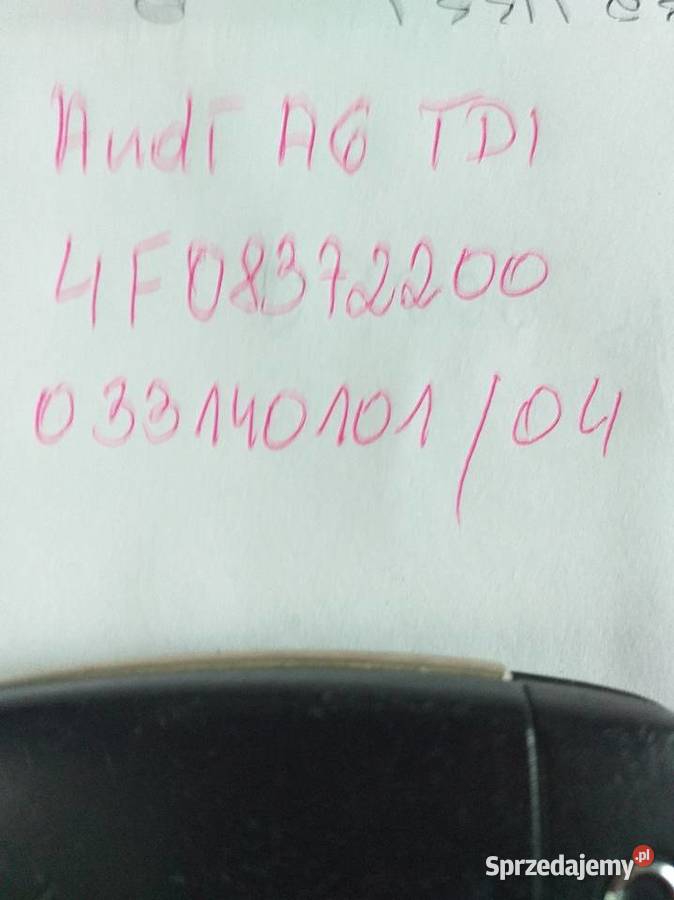 Audi A6 TDI
4F08372200
033140101/04
Sprzedajemy.pl